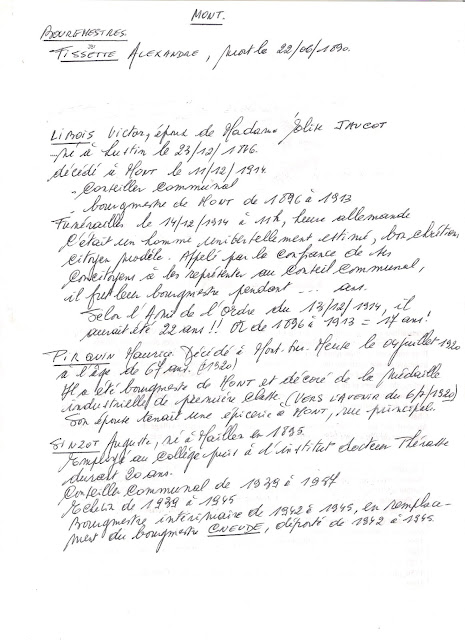 MONT.
BOURGMESTRES.
ou
TISSETTE ALEXANDRE, mort le 22/06/1890.
LIBOIS Victor, époux de Madame Elise JAUCOT
né à Lustin le 23/12/1846
décédé à MONT le 11/12/1914
- Conseiller communal
- bourgmestre de MONT de 1896 à 1913
Funérailles le 14/12/1914 à 11h, heure allemande
C'était un homme universellement estimé, bon chrétien,
citoyen modèle. Appelé par la confiance de ses
concitoyens à les représenter au Conseil communal,
il fut leur bourgmestre pendant ... ans.
Selon l'Ami de l'Ordre du 13/12/1914, il
aurait été 22 ans!! Or de 1896 à 1913 = 17 ans!
PIRQUIN Maurice Décédé à Mont-sur-Meuse le 04 juillet 1920
à l'âge de 67 ans. (1920)
Il a été bourgmestre de MONT et décoré de la médaille
industrielle de première classe (VERS L'AVENIR du 6/7/1920)
Son épouse tenait une épicerie à MONT, rue principale.
SINZOT Auguste, né à Maillen en 1895.
Employé au collège puis à l'institut docteur Thérasse
durant 20 ans.
Conseiller communal de 1939 à 1947
Echevin de 1939 à 1945
Bourgmestre intérimaire de 1942 à 1945, en remplace-
ment du bourgmestre CNEUDE, déporté de 1942 à 1945.